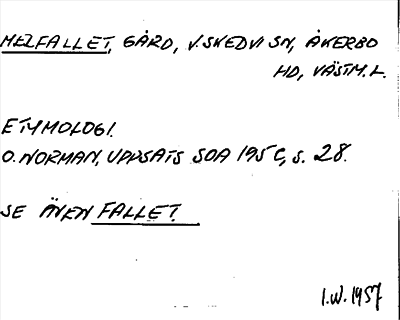 MELFALLET, GÅRD, V. SKEDVI SN, ÅKERBO
HD, VÄSTM. L.
ETYMOLOGI.
O. NORMAN, UPPSATS SOA 195C, S. 28.
SE ÄVEN FALLET.
I.W. 1957